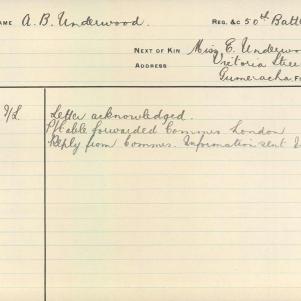 NAME A. B. Underwood. REG. &C 50th Batt
NEXT OF KIN Miss E. Underwoo
ADDRESS Victoria Stree
Gumeracha
Letter acknowledged.
cable forwarded Commrs London
Reply from Commrs. Information sent